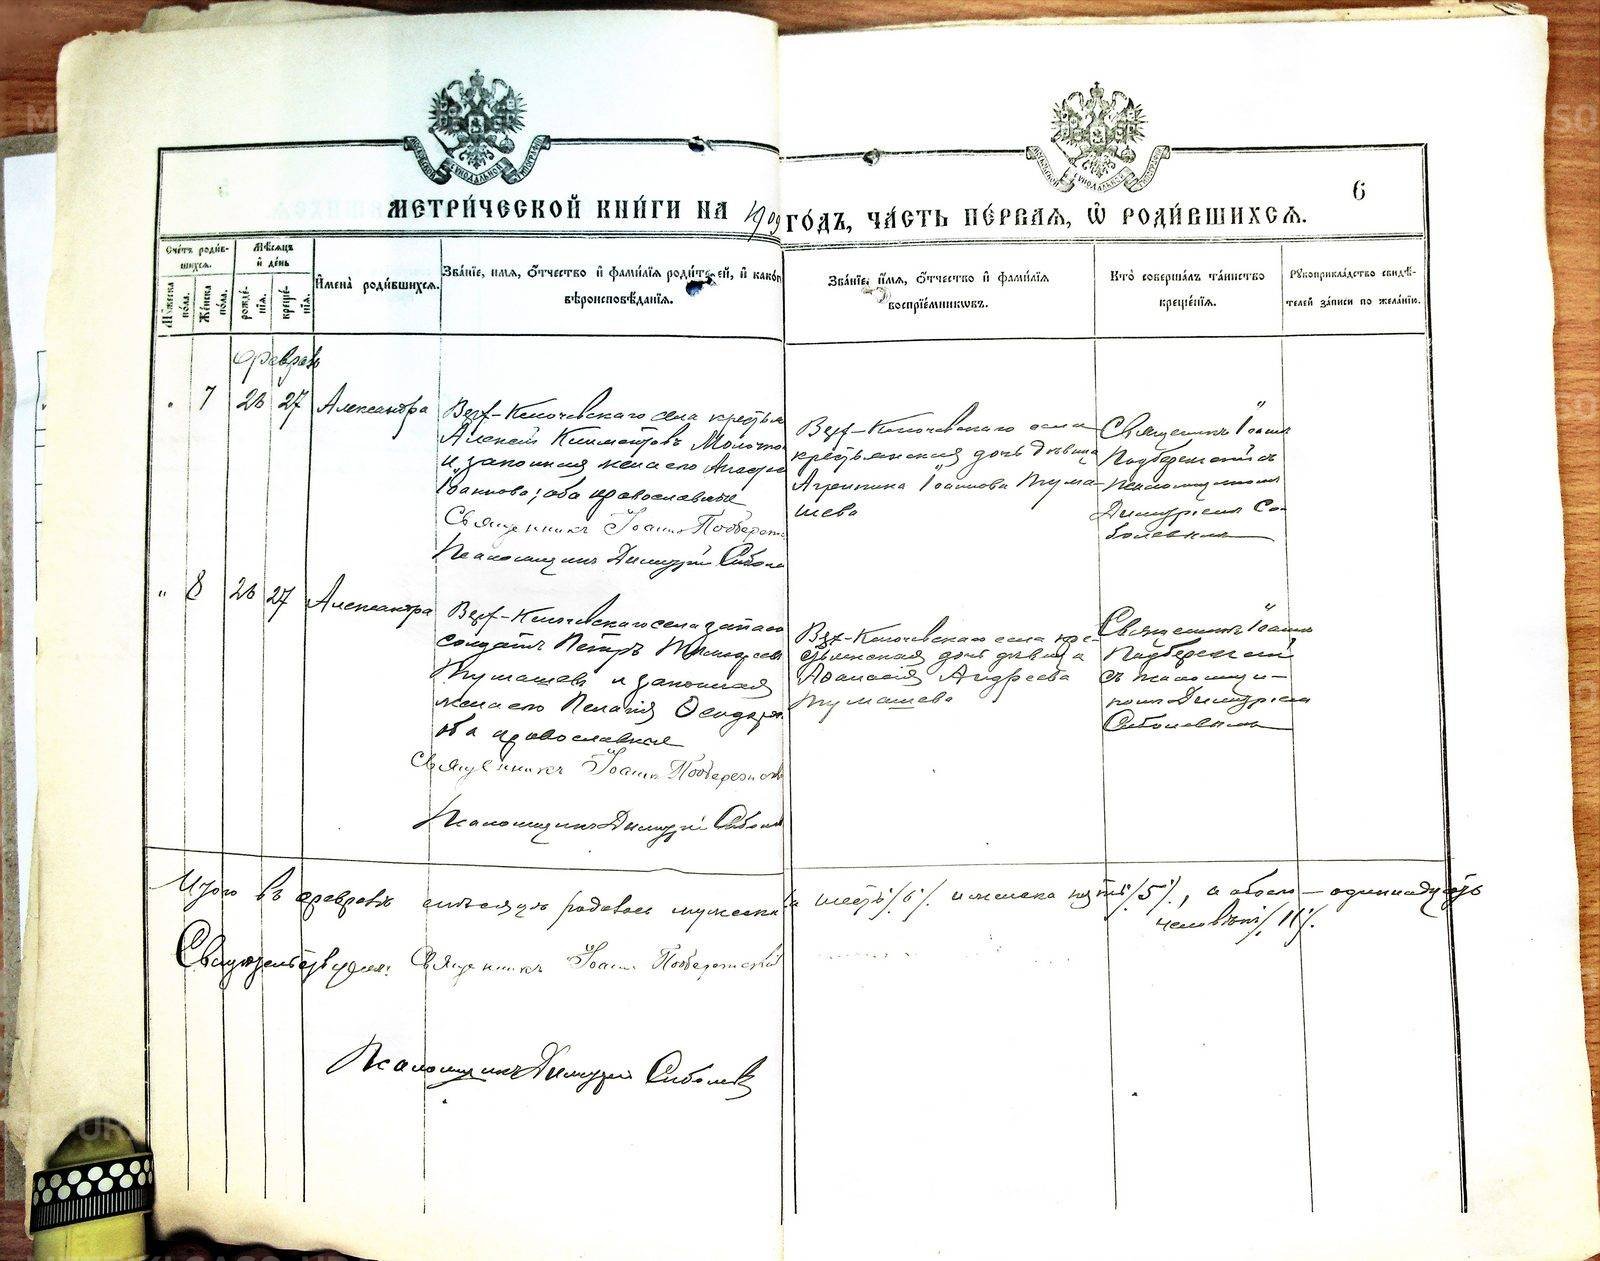 МЕТРИ́ЧЕСКОЙ КНИ́ГИ НА 1909 ГО́ДЪ, ЧА́СТЬ ПЕ́РВАЯ, Ѽ РОДИ́ВШИХСЯ.
6
Сче́тъ роди́вшихся.
Му́жеска по́ла.
Же́нска по́ла.
Мѣ́сяцъ и де́нь
рожде́нія.
креще́нія.
Имена̀ роди́вшихся.
Зва́ніе, имя, о́тчество и фами́лія роди́телей, и како́го
вѣроисповѣ́данія.
Зва́ніе, и́мя, о́тчество и фами́лія
воспріе́мниковъ.
Кто̀ соверша́лъ та́инство
креще́нія.
Рукоприкла́дство свидѣ́-
телей за́писи по жела́нію.
Февраль
" 7 26 27 Александра
Верх-Ключевскаго села крестьян
Алексѣй Климентовъ
и законная жена его
Іоаннова; оба православные
Священникъ Іоаннъ Подбережск
Псаломщикъ Димитрій Соболе
Верх-Ключевскаго села
крестьянская дочь дѣвица
Агрипина Іоаннова Тума-
шева
Священникъ Іоаннъ
Подбережскій съ
псаломщикомъ
Димитріемъ Со-
болевымъ
" 8 26 27 Александра
Верх-Ключевскаго села запасн
солдатъ Петръ
Тумашев и законная
жена его Пелагія
оба православные
Священникъ Іоаннъ Подбережск
Псаломщикъ Димитрій Соболе
Верх-Ключевскаго села кре-
стьянская дочь дѣвица
Афанасія Андреева
Тумашева
Священникъ Іоаннъ
Подбережскій
съ псаломщи-
комъ Димитріем
Соболевымъ
Итого въ февралѣ мѣсяцѣ родилось мужска шесть /6/ и женска пять /5/, а обоего – одиннадцать
человѣкъ /11/.
Свидѣтельствуемъ: Священникъ Іоаннъ Подбережскій
Псаломщикъ Димитрій Соболевъ